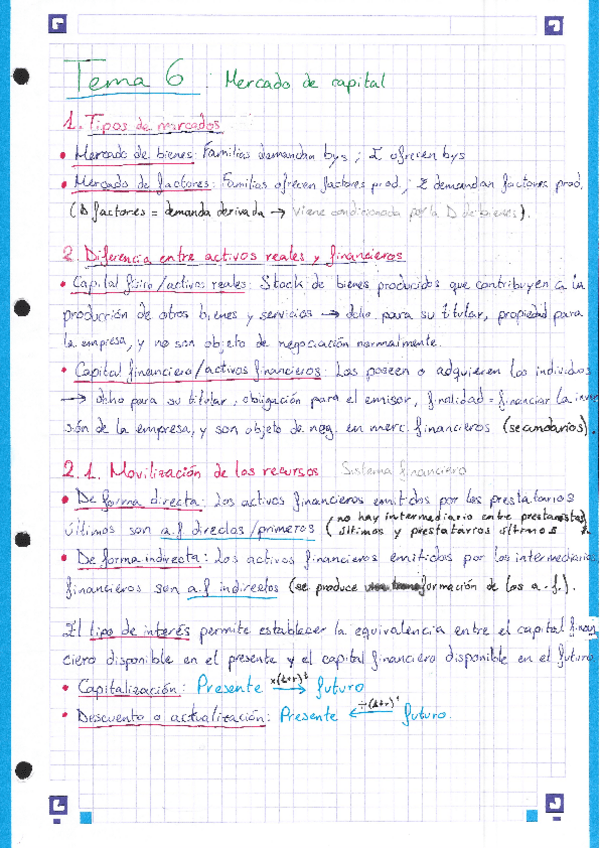 Tema 6: Mercado de capital
1. Tipos de mercados
• Mercado de bienes: Familias demandan bys; Σ ofrecen bys
• Mercado de factores: Familias ofrecen factores prod.; Σ demandan factores prod.
(D factores = demanda derivada → Viene condicionada por la D de bienes).
2. Diferencia entre activos reales y financieros
• Capital físico/activos reales: Stock de bienes producidos que contribuyen a la
producción de otros bienes y servicios → dcho para su titular, propiedad para
la empresa, y no son objeto de negociación normalmente.
• Capital financiero/activos financieros: Los poseen o adquieren los individuos
→ dcho para su titular, obligación para el emisor, finalidad = financiar la inver
sión de la empresa, y son objeto de neg. en merc. financieros (secundarios).
2.1. Movilización de los recursos Sistema financiero
• De forma directa: Los activos financieros emitidos por los prestatarios
últimos son a.f directos/primeros (no hay intermediario entre prestamistas
últimos y prestatarios últimos
• De forma indirecta: Los activos financieros emitidos por los intermediarios
financieros son a.f indirectos (se produce formación de los a.f.).
El tipo de interés permite establecer la equivalencia entre el capital finan
ciero disponible en el presente y el capital financiero disponible en el futuro
• Capitalización: Presente x(1+r)^t → futuro
• Descuento o actualización: Presente ← ÷(1+r)^t futuro.